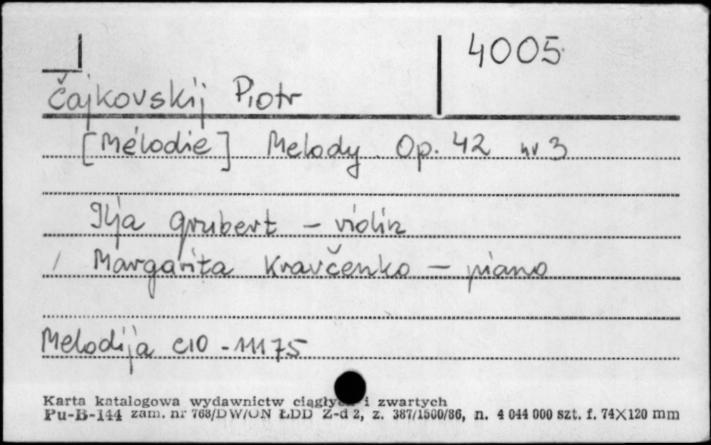 4005
Čajkovskij Piotr
[Mélodie] Melody. Op. 42 nr 3
Ilja Grubert – violin
Margarita Kravčenko – piano
Melodija C10-11175
Karta katalogowa wydawnictw ciągłych i zwartych
Pu-B-144 zam. nr 768/DW/ON ŁDD Z-d 2, z. 387/1500/86, n. 4 044 000 szt. f. 74X120 mm